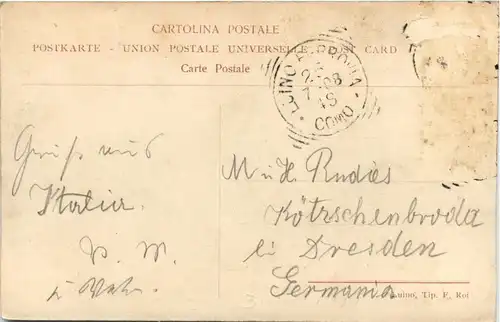 CARTOLINA POSTALE
POSTKARTE - UNION POSTALE UNIVERSELLE - POST CARD
Carte Postale
LUINO FERROVIA
7 08
COMO
Gruß aus
Italia.
P. M.
M u H. Rudies
Kötzschenbroda
bei Dresden
Germania
Luino, Tip. F.